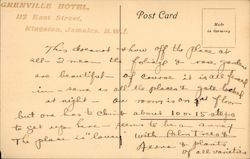 GRENVILLE HOTEL,
112 East Street,
Kingston, Jamaica, B.W.I.
Post Card
Made in Germany
This doesnt show off the place at
all - I mean the foliage & rose gardens
are beautiful - of course it is all fenced
in - same as all the places & gate locked
at night - our room is on 1st floor
but one has to climb about 100 or so steps
to get up here
The place is "lovely" with Palm Trees &
Ferns & plants
of all varieties